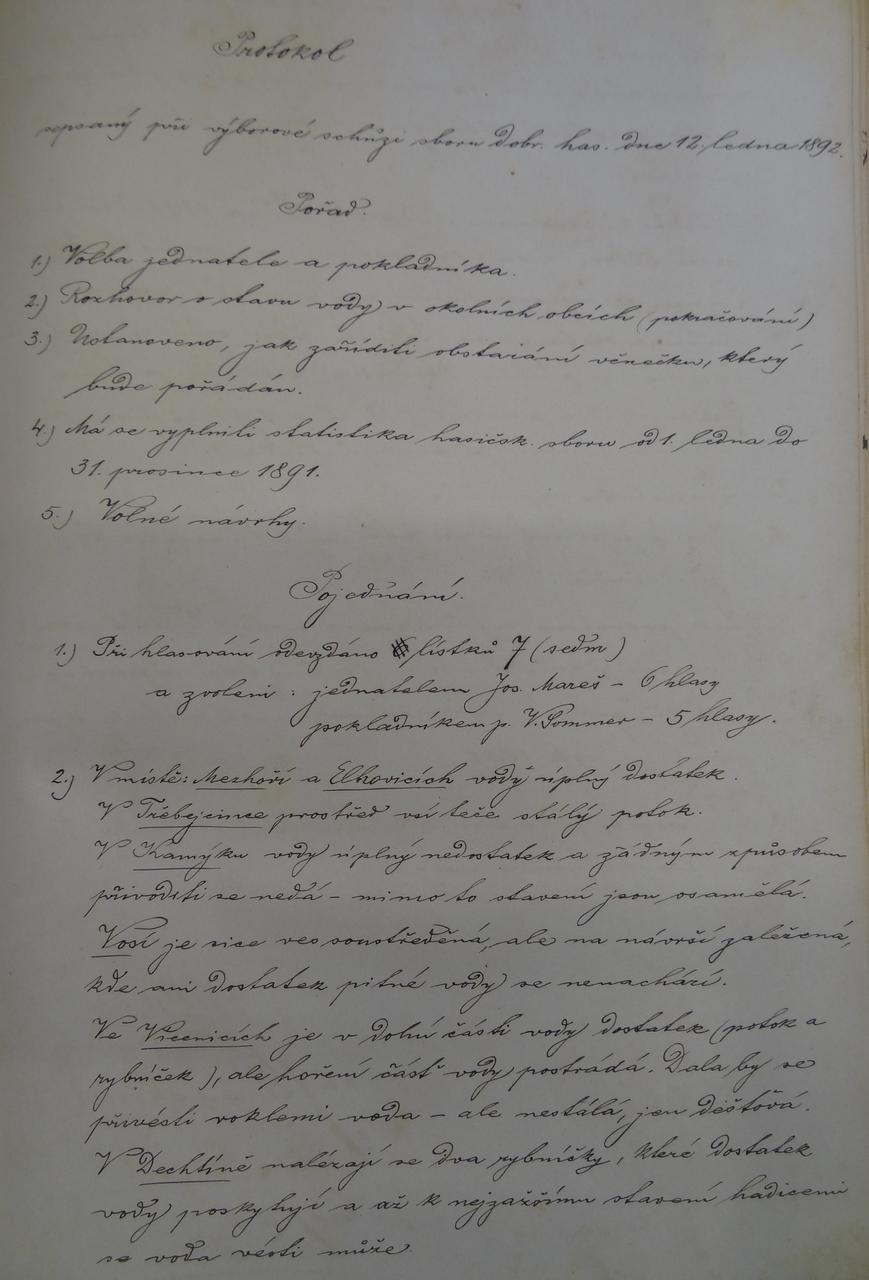 Protokol
sepsaný při výborové schůzi sboru dobr. has. dne 12. ledna 1892.
Pořad.
1.) Volba jednatele a pokladníka.
2.) Rozhovor o stavu vody v okolních obcích (pokračování)
3.) Ustanoveno, jak zaříditi obstarání věnečku, který
bude pořádán.
4.) Má se vyplnili statistika hasičsk. sboru od 1. ledna do
31. prosince 1891.
5.) Volné návrhy.
Pojednání.
1.) Při hlasování odevzdáno lístků 7 (sedm)
a zvoleni : jednatelem Jos. Mareš – 6 hlasy
pokladníkem p. V. Pommer – 5 hlasy.
2.) V místě: Mezhoří a Elhovicích vody úplný dostatek.
V Třebejcince prostřed vsí teče stálý potok.
V Kamýku vody úplný nedostatek a žádným způsobem
přivoditi se nedá – mimo to stavení jsou osamělá.
Vosí je sice ves soustředěná, ale na návrší založená,
kde ani dostatek pitné vody se nenachází.
Ve Vicenicích je v dolní části vody dostatek (potok a
rybníček), ale hoření část vody postrádá. Dala by se
přivésti roklemi voda – ale nestálá, jen dešťová.
V Dechtíně nalézají se dva rybníčky, které dostatek
vody poskytují a až k nejzazšímu stavení hadicemi
se voda vésti může.